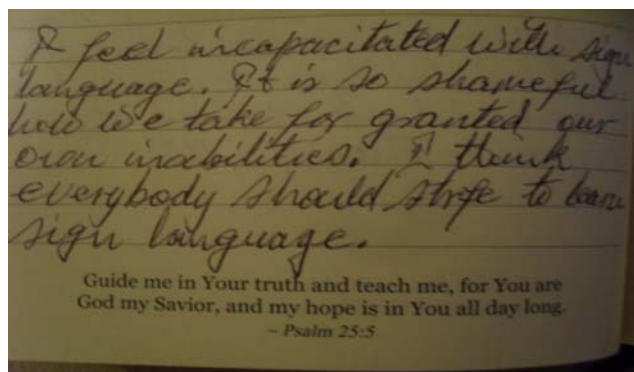 I feel incapacitated with sign
language. It is so shameful
how we take for granted our
own inabilities. I think
everybody should strife to learn
sign language.
Guide me in Your truth and teach me, for You are
God my Savior, and my hope is in You all day long.
~ Psalm 25:5